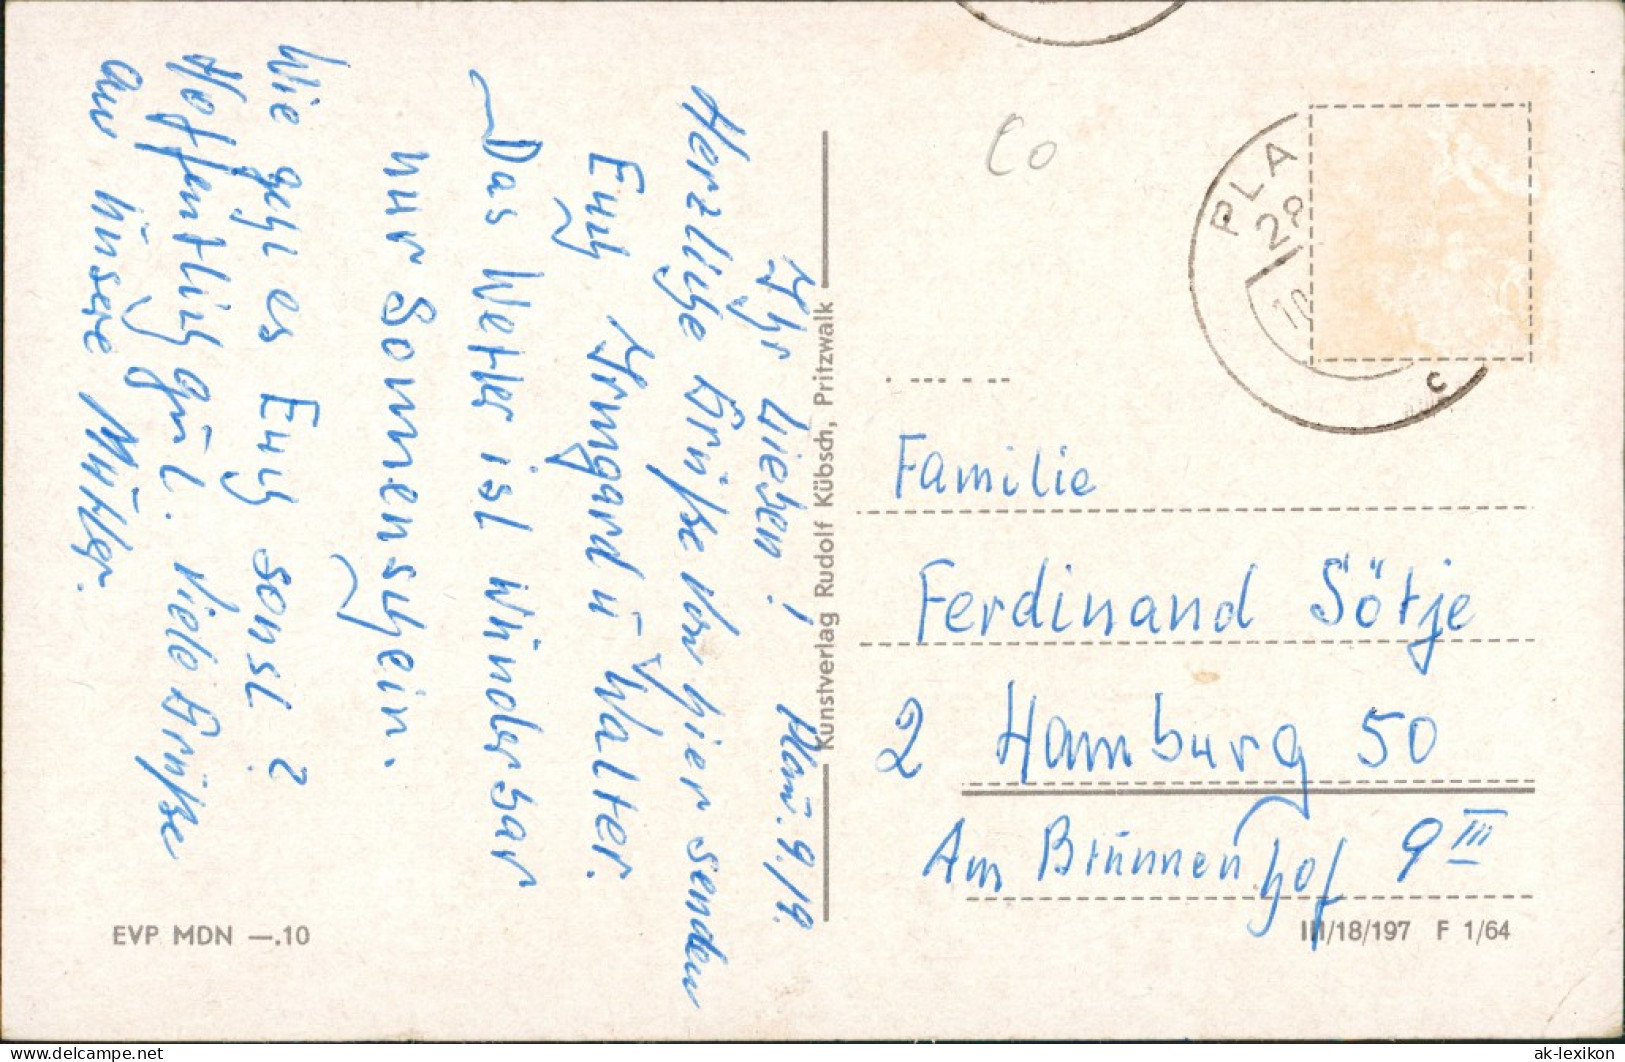 Plau. 9./9.
Ihr Lieben!
Herzliche Grüße von hier senden
Euch Irmgard u Walter.
Das Wetter ist wunderbar
nur Sonnenschein.
Wie geht es Euch sonst?
Hoffentlich gut. Viele Grüße
an unsere Mutter.
Kunstverlag Rudolf Kübsch, Pritzwalk
EVP MDN —.10
Co
PLA
10
c
Familie
Ferdinand Sötje
2 Hamburg 50
Am Brunnenhof 9 III
III/18/197 F 1/64
www.delcampe.net
ak-lexikon